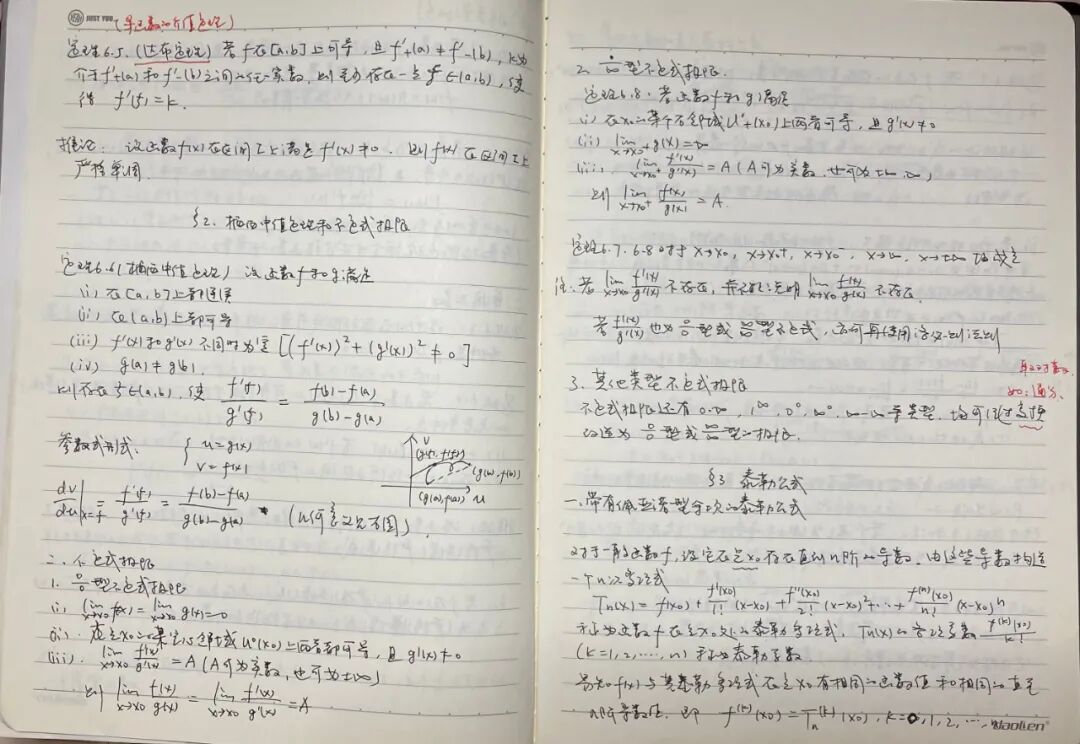 JUST YOU
(导函数的介值定理)
定理6.5.(达布定理) 若f在[a,b]上可导,且f'+(a)≠f'-(b), k为
介于f'+(a)和f'-(b)之间的任一实数,则至少存在一点ξ∈(a,b),使
得 f'(ξ)=k.
推论. 设函数f(x)在区间I上满足f'(x)≠0. 则f(x)在区间I上
严格单调.
§2. 柯西中值定理和不定式极限
定理6.6(柯西中值定理) 设函数f和g满足
(i) 在[a,b]上都连续
(ii) 在(a,b)上都可导
(iii) f'(x)和g'(x)不同时为零 [(f'(x))²+(g'(x))²≠0]
(iv) g(a)≠g(b).
则存在ξ∈(a,b), 使 f'(ξ)/g'(ξ) = (f(b)-f(a))/(g(b)-g(a))
参数式形式: { u=g(x)
v=f(x)
v
(g(ξ),f(ξ))
(g(b),f(b))
(g(a),f(a)) u
dv/du|x=ξ = f'(ξ)/g'(ξ) = (f(b)-f(a))/(g(b)-g(a)) (几何意义见右图).
二. 不定式极限
1. 0/0型不定式极限
(i) lim x→x0 f(x)=lim x→x0 g(x)=0
(ii). 在点x0的某空心邻域U°(x0)上两者都可导,且g'(x)≠0
(iii). lim x→x0 f'(x)/g'(x) = A (A可为实数,也可为±∞)
则 lim x→x0 f(x)/g(x) = lim x→x0 f'(x)/g'(x) = A
2. 型不定式极限.
定理6.8. 若函数f和g满足
(i) 在x0的某个右邻域U°+(x0)上两者可导,且g'(x)≠0
(ii) lim x→x0+ g(x)=∞
(iii). lim x→x0+ f'(x)/g'(x) = A (A可为实数,也可为±∞,∞)
则 lim x→x0+ f(x)/g(x) = A.
定理6.7, 6.8对于x→x0, x→x0+, x→x0-, x→∞, x→±∞均成立
注:若 lim x→x0 f'(x)/g'(x) 不存在,并不能说明 lim x→x0 f(x)/g(x) 不存在.
若 f'(x)/g'(x) 也为0/0型或∞/∞型不定式,亦可再使用洛必达法则
3. 其他类型不定式极限
不定式极限还有0·∞, 1^∞, 0^0, ∞^0, ∞-∞等类型. 均可经过变换
改造为0/0型或∞/∞型的极限.
取对数.
∞-∞:通分.
§3 泰勒公式
一.带有佩亚诺型余项的泰勒公式
对于一般函数f,设它在点x0存在直到n阶的导数. 由这些导数构造
一个n次多项式
Tn(x) = f(x0) + f'(x0)/1! (x-x0) + f''(x0)/2! (x-x0)²+…+ f^(n)(x0)/n! (x-x0)^n
称为函数f在点x0处的泰勒多项式, Tn(x)的各项系数 f^(k)(x0)/k!
(k=1,2,…,n) 称为泰勒系数.
易知f(x)与其泰勒多项式在点x0有相同的函数值和相同的直至
n阶导数值, 即 f^(k)(x0)=Tn^(k)(x0), k=0,1,2,…,